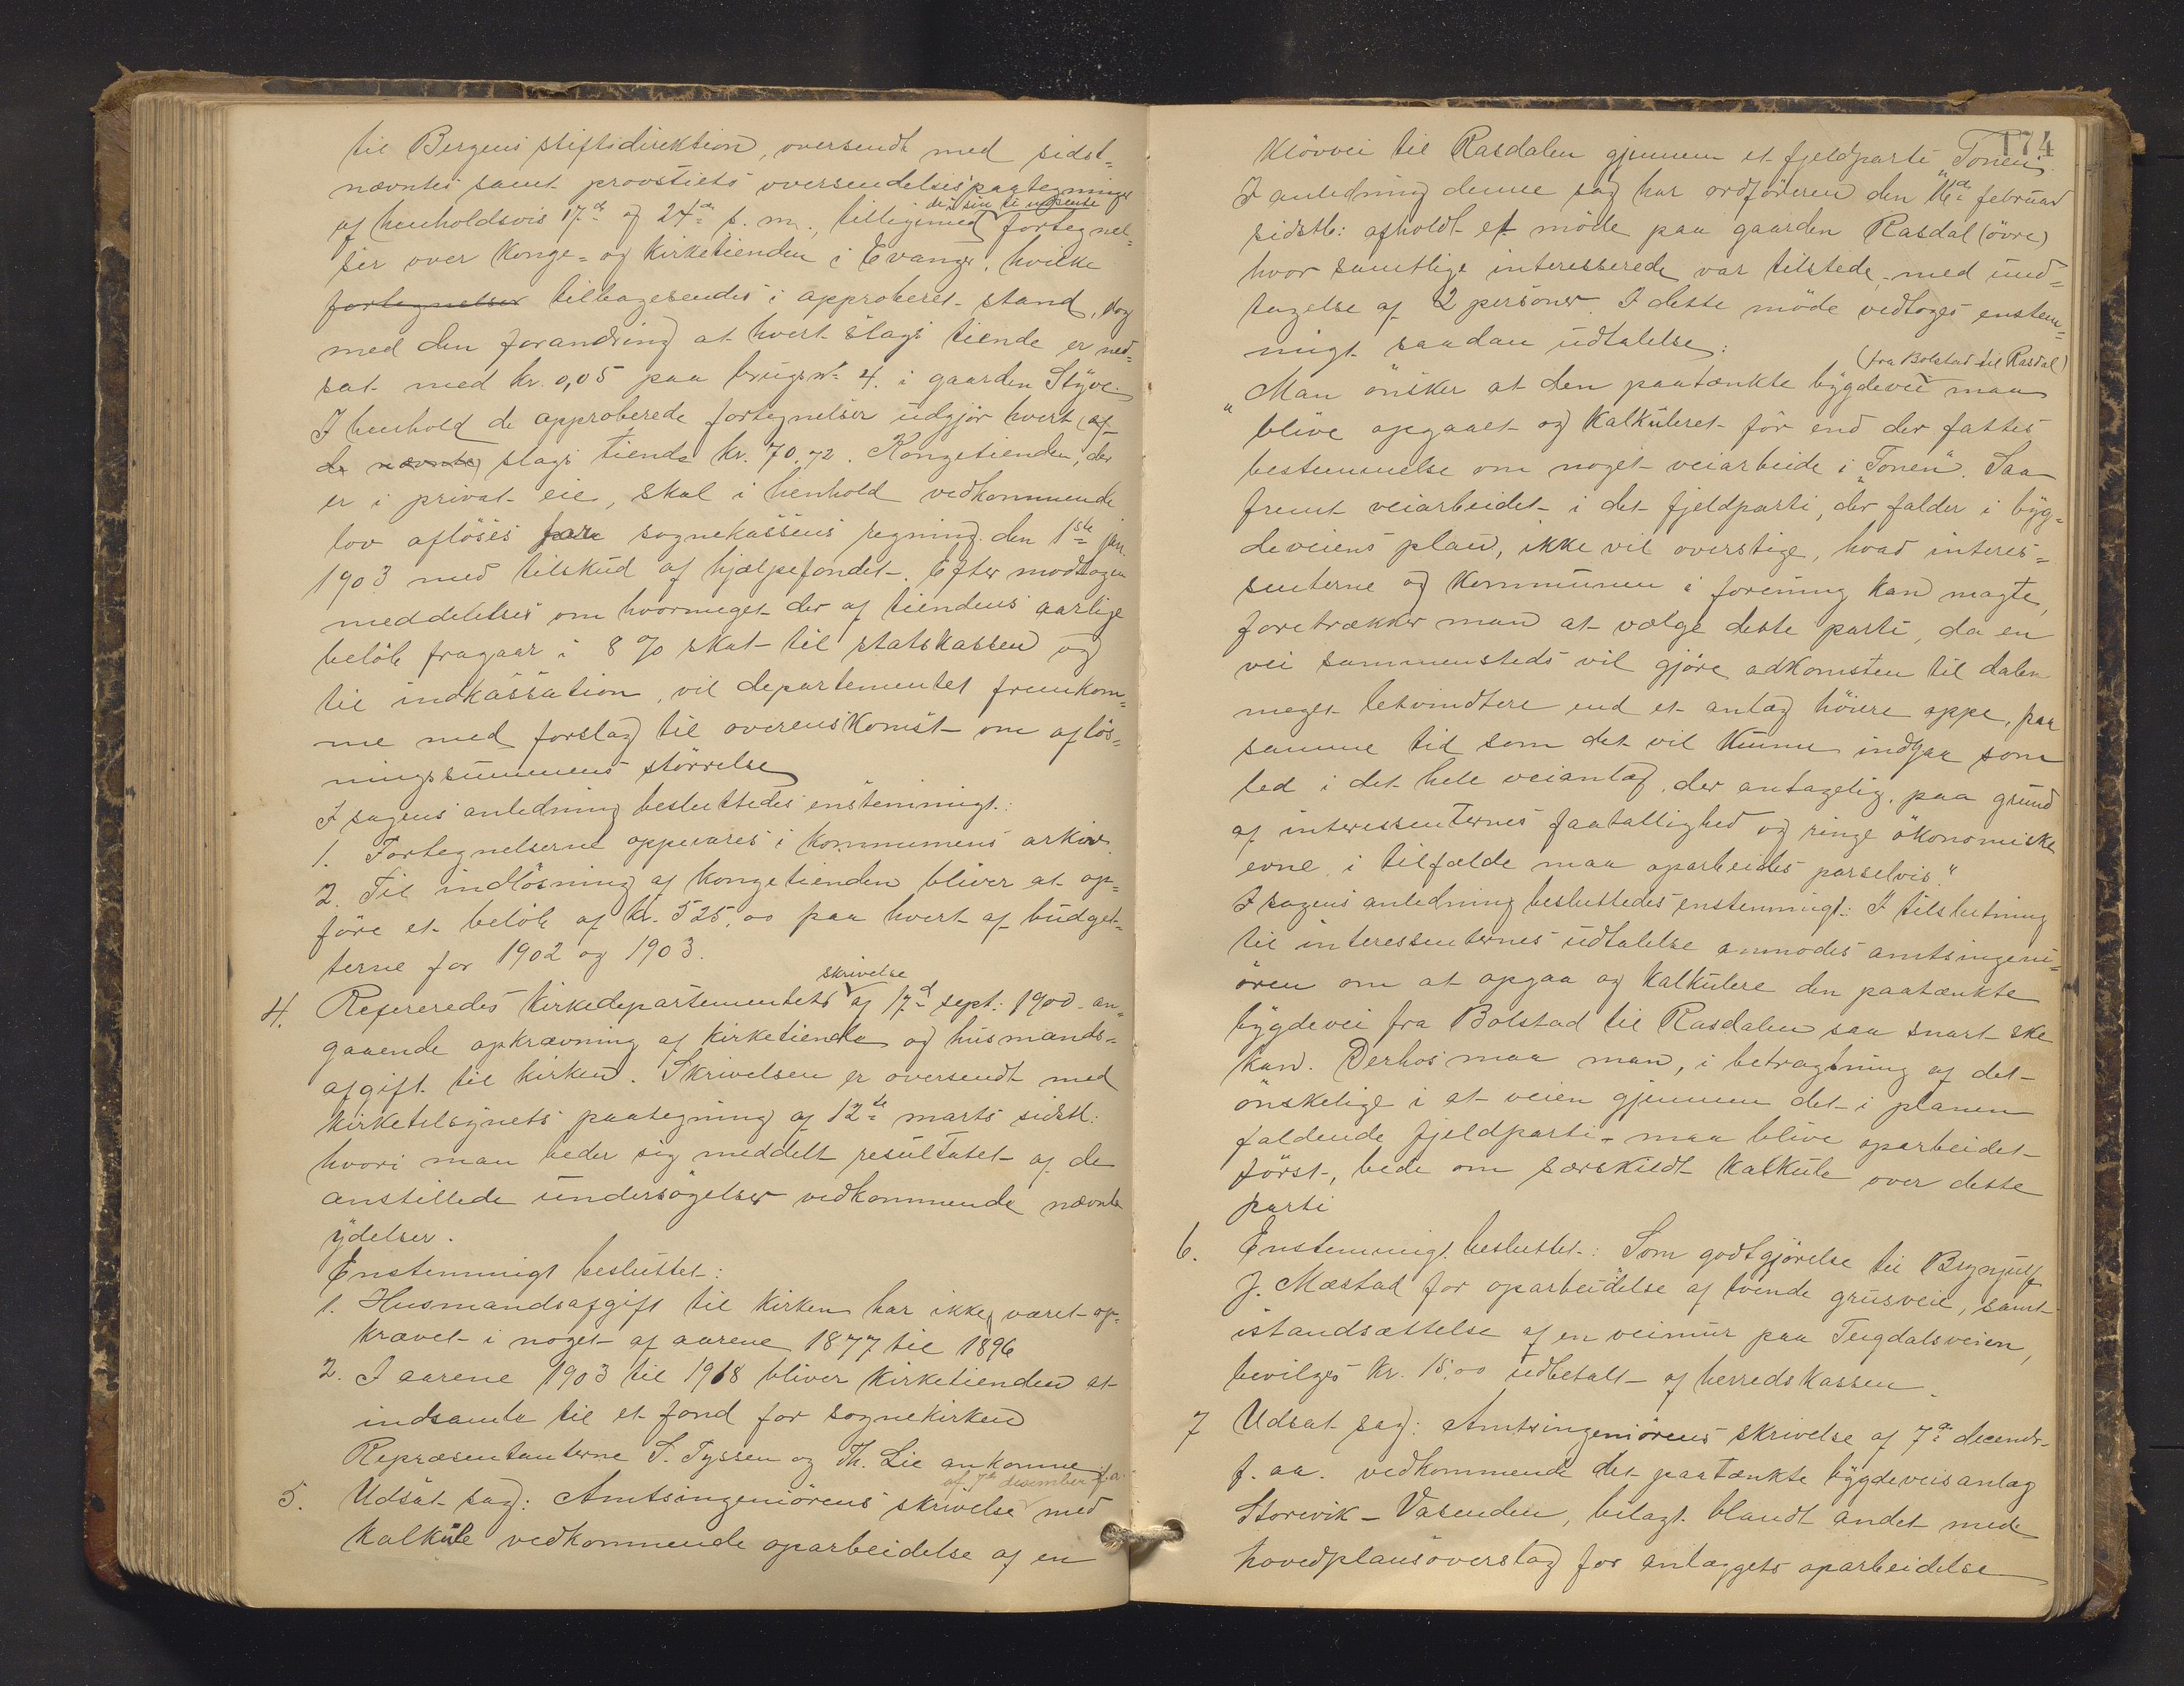 til Bergens stiftsdirektion, oversendt med sidst-
nævntes samt provstiets oversendelsespaategninger
af henholdsvis 17de og 24de s. m., tilligemed fortegnel-
ser over Konge- og Kirketienden i Evanger, hvilke
fortegnelser tilbagesendes i approberet stand, dog
med den forandring at hvert slags tiende er ned-
sat med kr. 0,05 paa brugsnr. 4. i gaarden Styve.
I henhold de approberede fortegnelser udgjør hvert af
de nævnte slags tiende kr. 70.72. Kongetienden, der
er i privat eie, skal i henhold vedkommende
lov afløses for sognekassens regning den 1ste jan.
1903 med tilskud af hjælpefondet. Efter modtagen
meddelelse om hvormeget der af tiendens aarlige
beløb fragaar i 8 % skat til statskassen og
til indkassation, vil departementet fremkom-
me med forslag til overenskomst om afløs-
ningssummens størrelse
I sagens anledning besluttedes enstemmigt:
1. Fortegnelserne opp­evares i kommunens arkiv.
2. Til indløsning af kongetienden bliver at op-
føre et beløb af kr. 525,00 paa hvert af budget-
terne for 1902 og 1903.
skrivelse
4. Refereredes Kirkedepartementets af 17d sept: 1900 an-
gaaende opkrævning af kirketiende og husmands-
afgift til kirken. Skrivelsen er oversendt med
kirketilsynets paategning af 12te marts sidstl:
hvori man beder sig meddelt resultatet af de
anstillede undersøgelser vedkommende nævnte
ydelser.
Enstemmigt besluttet:
1. Husmandsafgift til Kirken har ikke været op-
krævet i noget af aarene 1877 til 1896
2. I aarene 1903 til 1918 bliver Kirketienden at
indsamle til et fond for sognekirken
Repræsentanterne S. Tyssen og Th. Lie ankomne
af 7de desember f.a.
5. Udsat sag: Amtsingeniørens skrivelse med
Kalkule vedkommende oparbeidelse af en
174
Kløvvei til Rasdalen gjennem et fjeldparti „Tonen“.
I anledning denne sag har ordføreren den 16de februar
sidstl: afholdt et møde paa gaarden Rasdal (øvre)
hvor samtlige interesserede var tilstede, med und-
tagelse af 2 personer. I dette møde vedtoges enstem-
migt saadan udtalelse:
(fra Bolstad til Rasdal)
„Man ønsker at den paatænkte bygdevei maa
blive opgaaet og Kalkuleret før end der fattes
bestemmelse om noget veiarbeide i „Tonen“. Saa-
fremt veiarbeidet i det fjeldparti, der falder i byg-
deveiens plan, ikke vil overstige, hvad interes-
senterne og Kommunen i forening kan magte,
foretrækker man at vælge dette parti, da en
vei sammensteds vil gjøre adkomsten til dalen
meget letvindtere end et anlæg høiere oppe, paa
samme tid som det vil Kunne indgaa som
led i det hele veianlæg, der antagelig, paa grund
af interessenternes faatallighed og ringe økonomiske
evne, i tilfælde maa oparbeides parselvis.“
I sagens anledning besluttedes enstemmigt: I tilslutning
til interessenternes udtalelse anmodes amtsingeni-
øren om at opgaa og Kalkulere den paatænkte
bygdevei fra Bolstad til Rasdalen saa snart ske
kan. Derhos maa man, i betragtning af det
ønskelige i at veien gjennem det i planen
faldende fjeldparti maa blive oparbeidet
først, bede om særskildt Kalkule over dette
parti
6. Enstemmigt besluttet: Som godtgjørelse til Brynjulf
J. Mæstad for oparbeidelse af tvende grusveie, samt
istandsættelse af en veimur paa Teigdalsveien,
bevilges kr. 15,00 udbetalt af herredskassen.
7 Udsat sag: Amtsingeniørens skrivelse af 7de decembr.
f. aa. vedkommende det paatænkte bygdeveisanlæg
Storevik – Vasenden, bilagt blandt andet med
hovedplansoverslag for anlæggets oparbeidelse